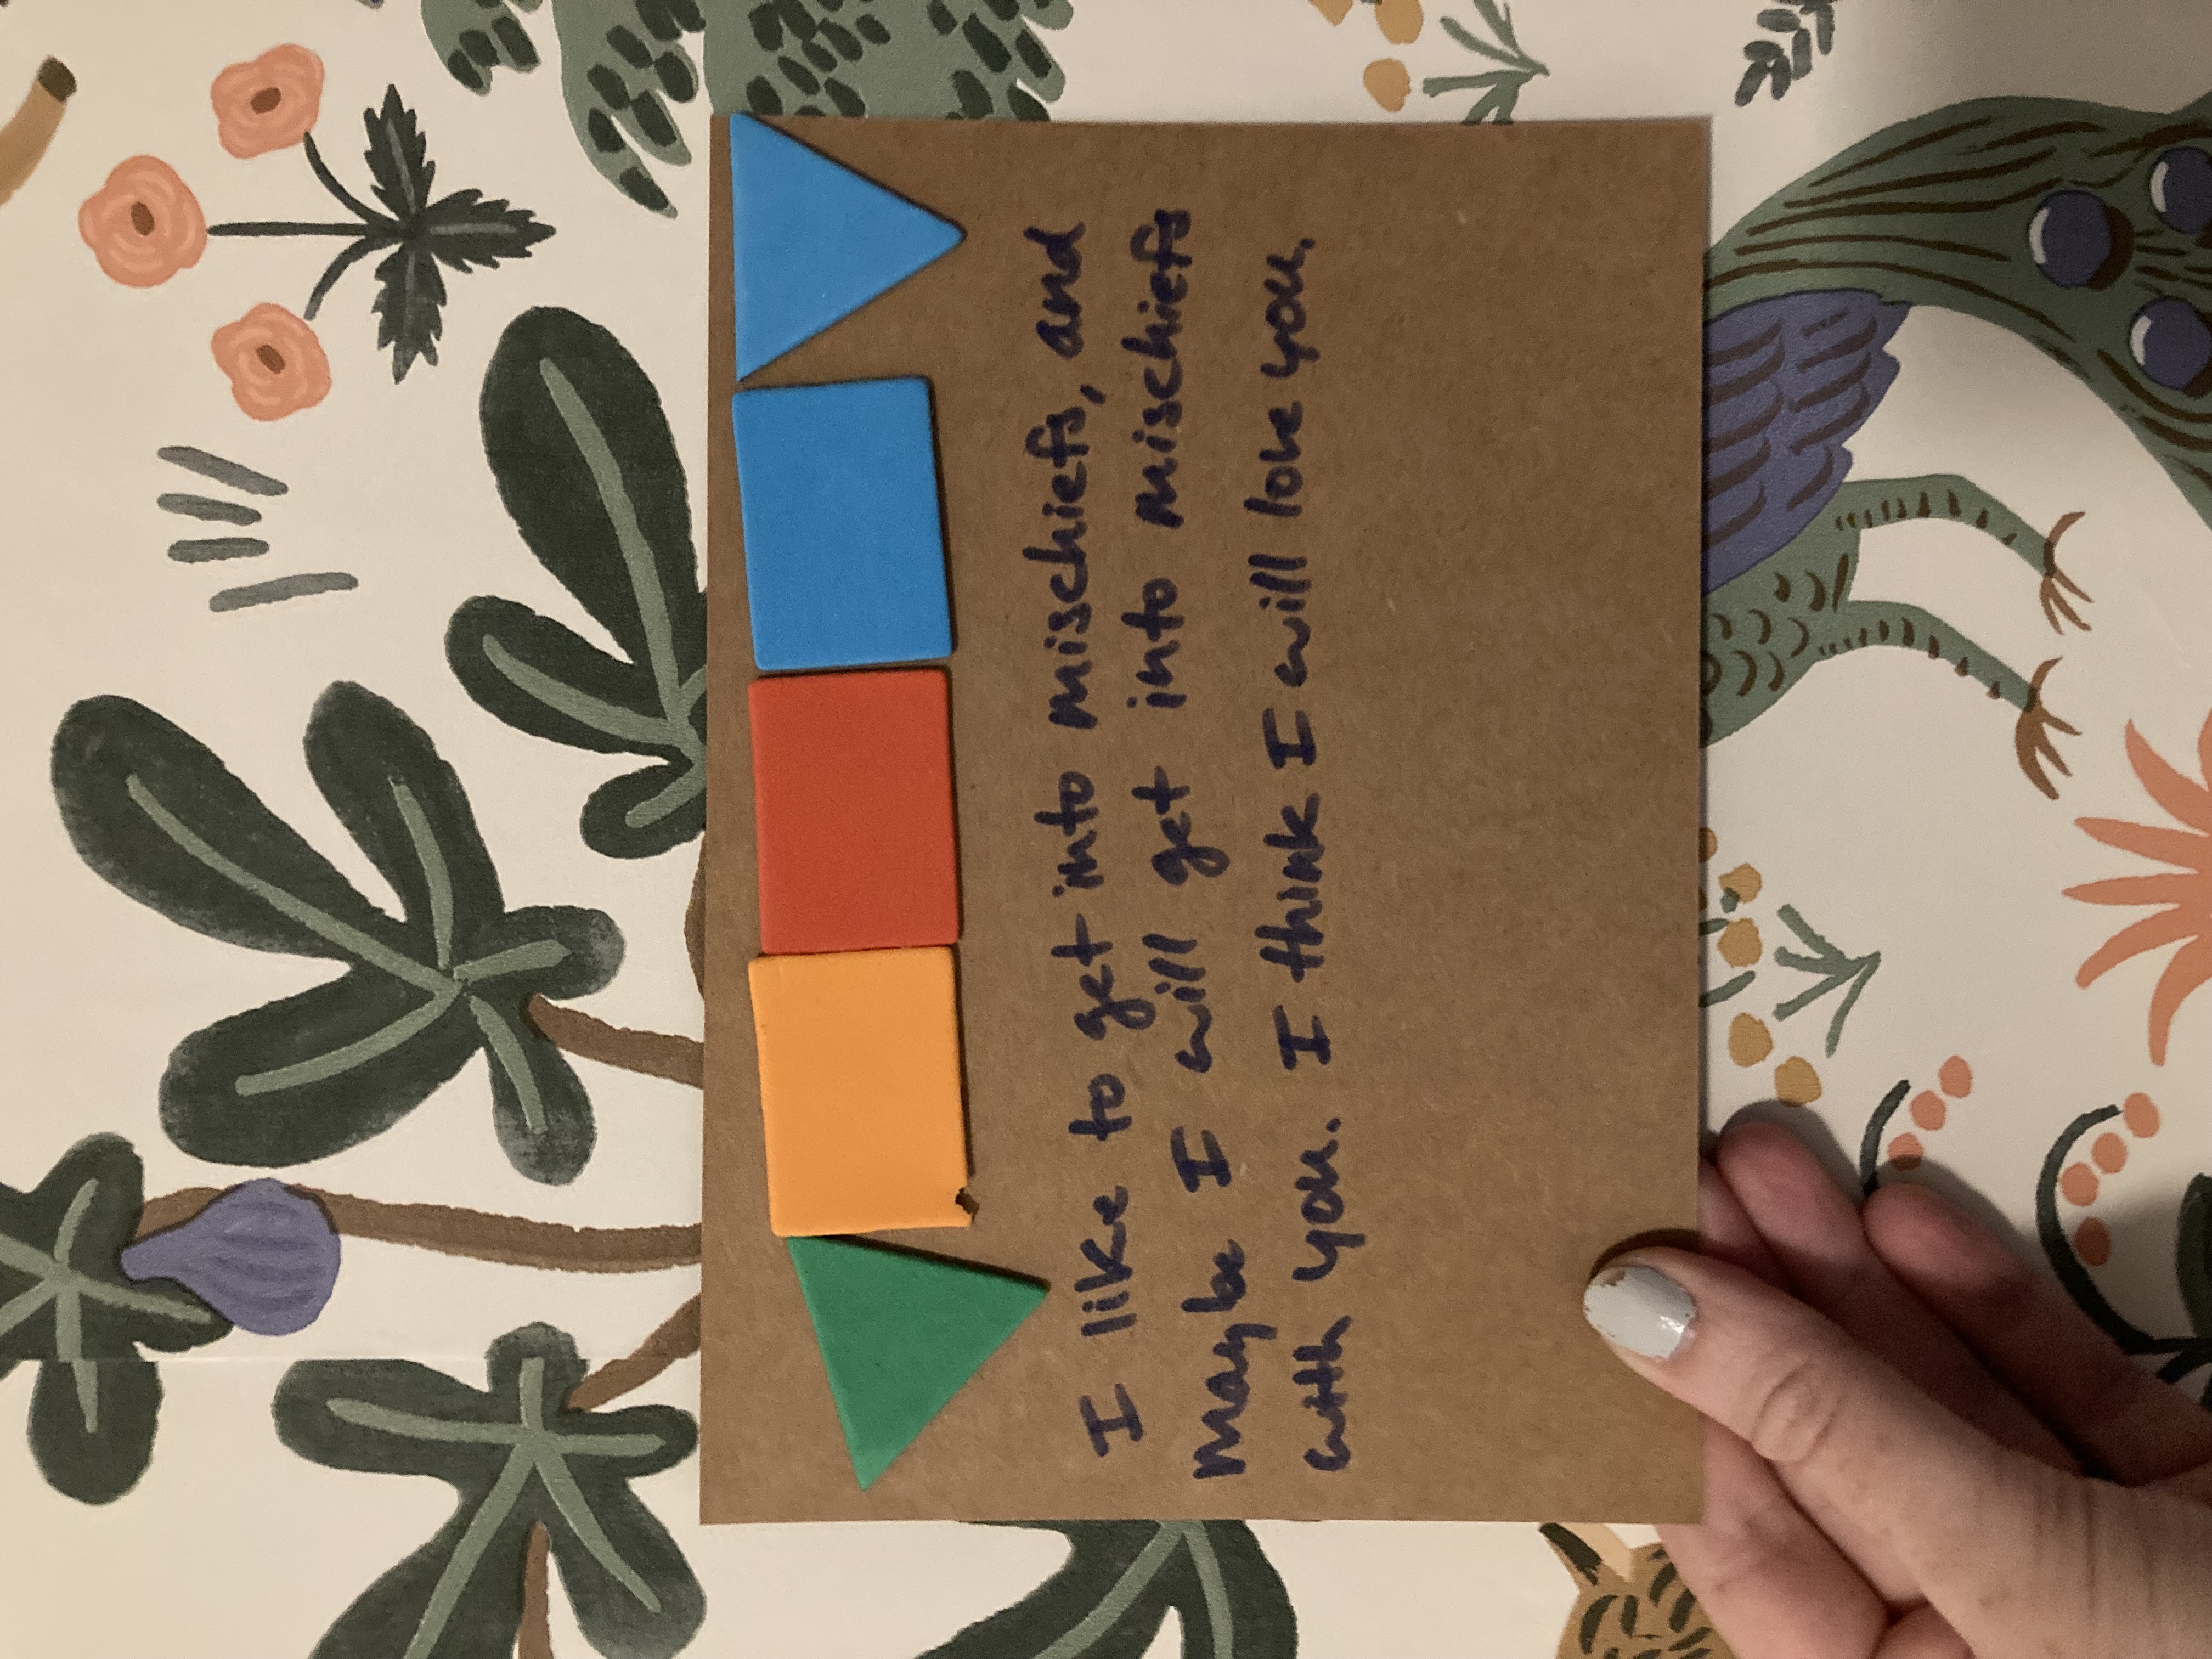 I like to get into mischiefs, and
Maybe I will get into mischiefs
with you. I think I will love you.